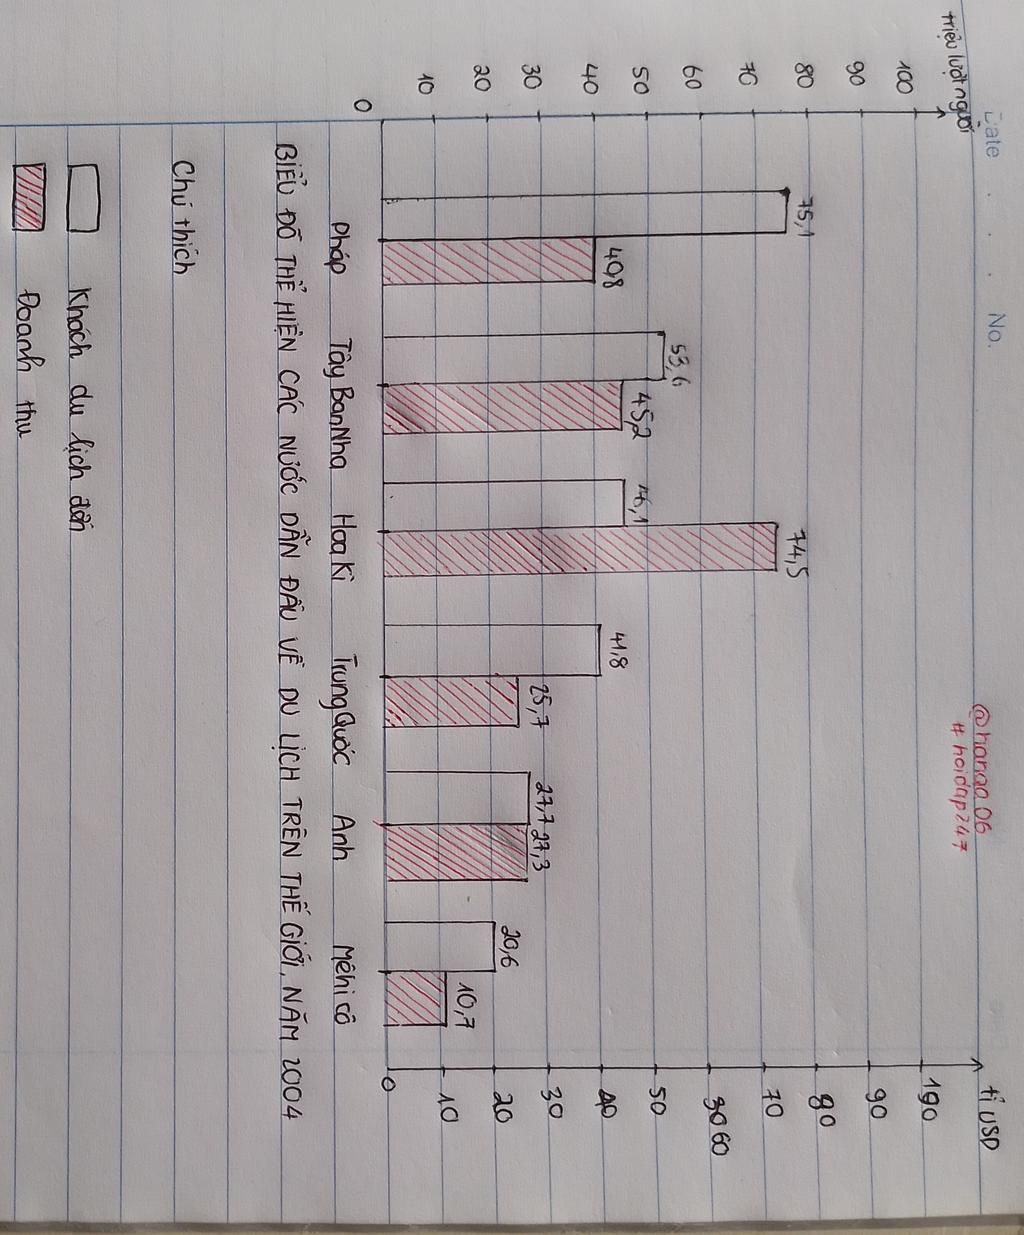 Date . . . No.
@nanao06
#hoidap247
triệu lượt người
tỉ USD
100
90
80
70
60
50
40
30
20
10
0
190
90
80
70
3060
50
40
30
20
10
0
75,1
40,8
53,6
45,2
46,1
74,5
41,8
25,7
27,7
27,3
20,6
10,7
Pháp Tây Ban Nha Hoa Kì Trung Quốc Anh Mêhicô
BIỂU ĐỒ THỂ HIỆN CÁC NƯỚC DẪN ĐẦU VỀ DU LỊCH TRÊN THẾ GIỚI, NĂM 2004
Chú thích
Khách du lịch đến
Doanh thu